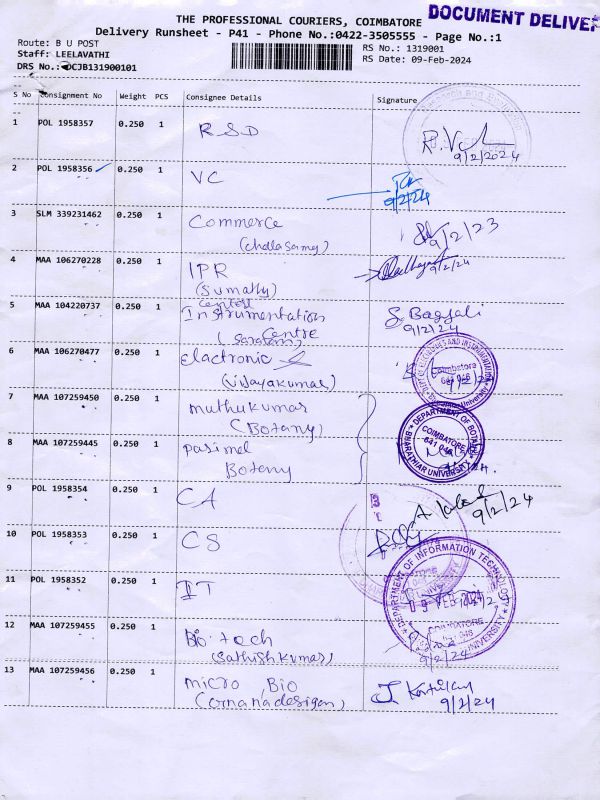 THE PROFESSIONAL COURIERS, COIMBATORE
DOCUMENT DELIVER
Delivery Runsheet - P41 - Phone No.:0422-3505555 - Page No.:1
Route: B U POST
RS No.: 1319001
Staff: LEELAVATHI
RS Date: 09-Feb-2024
DRS No.: DCJB131900101
S No Consignment No Weight PCS Consignee Details Signature
1 POL 1958357 0.250 1 RSD R.V
9/2/2024
2 POL 1958356 0.250 1 VC
9/2/24
3 SLM 339231462 0.250 1 Commerce
(chellasamy) 9/2/23
4 MAA 106270228 0.250 1 IPR
(Sumathy) 9/2/24
5 MAA 104220737 0.250 1 Instrumentation S. Bagyali
Centre 9/2/24
6 MAA 106270477 0.250 1 Elactronic
(vijayakumar)
Coimbatore
641 046
7 MAA 107259450 0.250 1 muthukumar
(Botany)
DEPARTMENT OF BOTANY
COIMBATORE
641 046
BHARATHIAR UNIVERSITY
8 MAA 107259445 0.250 1
Botany
9 POL 1958354 0.250 1 CA
9/2/24
10 POL 1958353 0.250 1 CS
11 POL 1958352 0.250 1 IT
DEPARTMENT OF INFORMATION TECHNOLOGY
FEB 2024
COIMBATORE
UNIVERSITY
12 MAA 107259455 0.250 1 Bio.tech
(Sathishkumar) 9/2/24
13 MAA 107259456 0.250 1 micro Bio
9/2/24